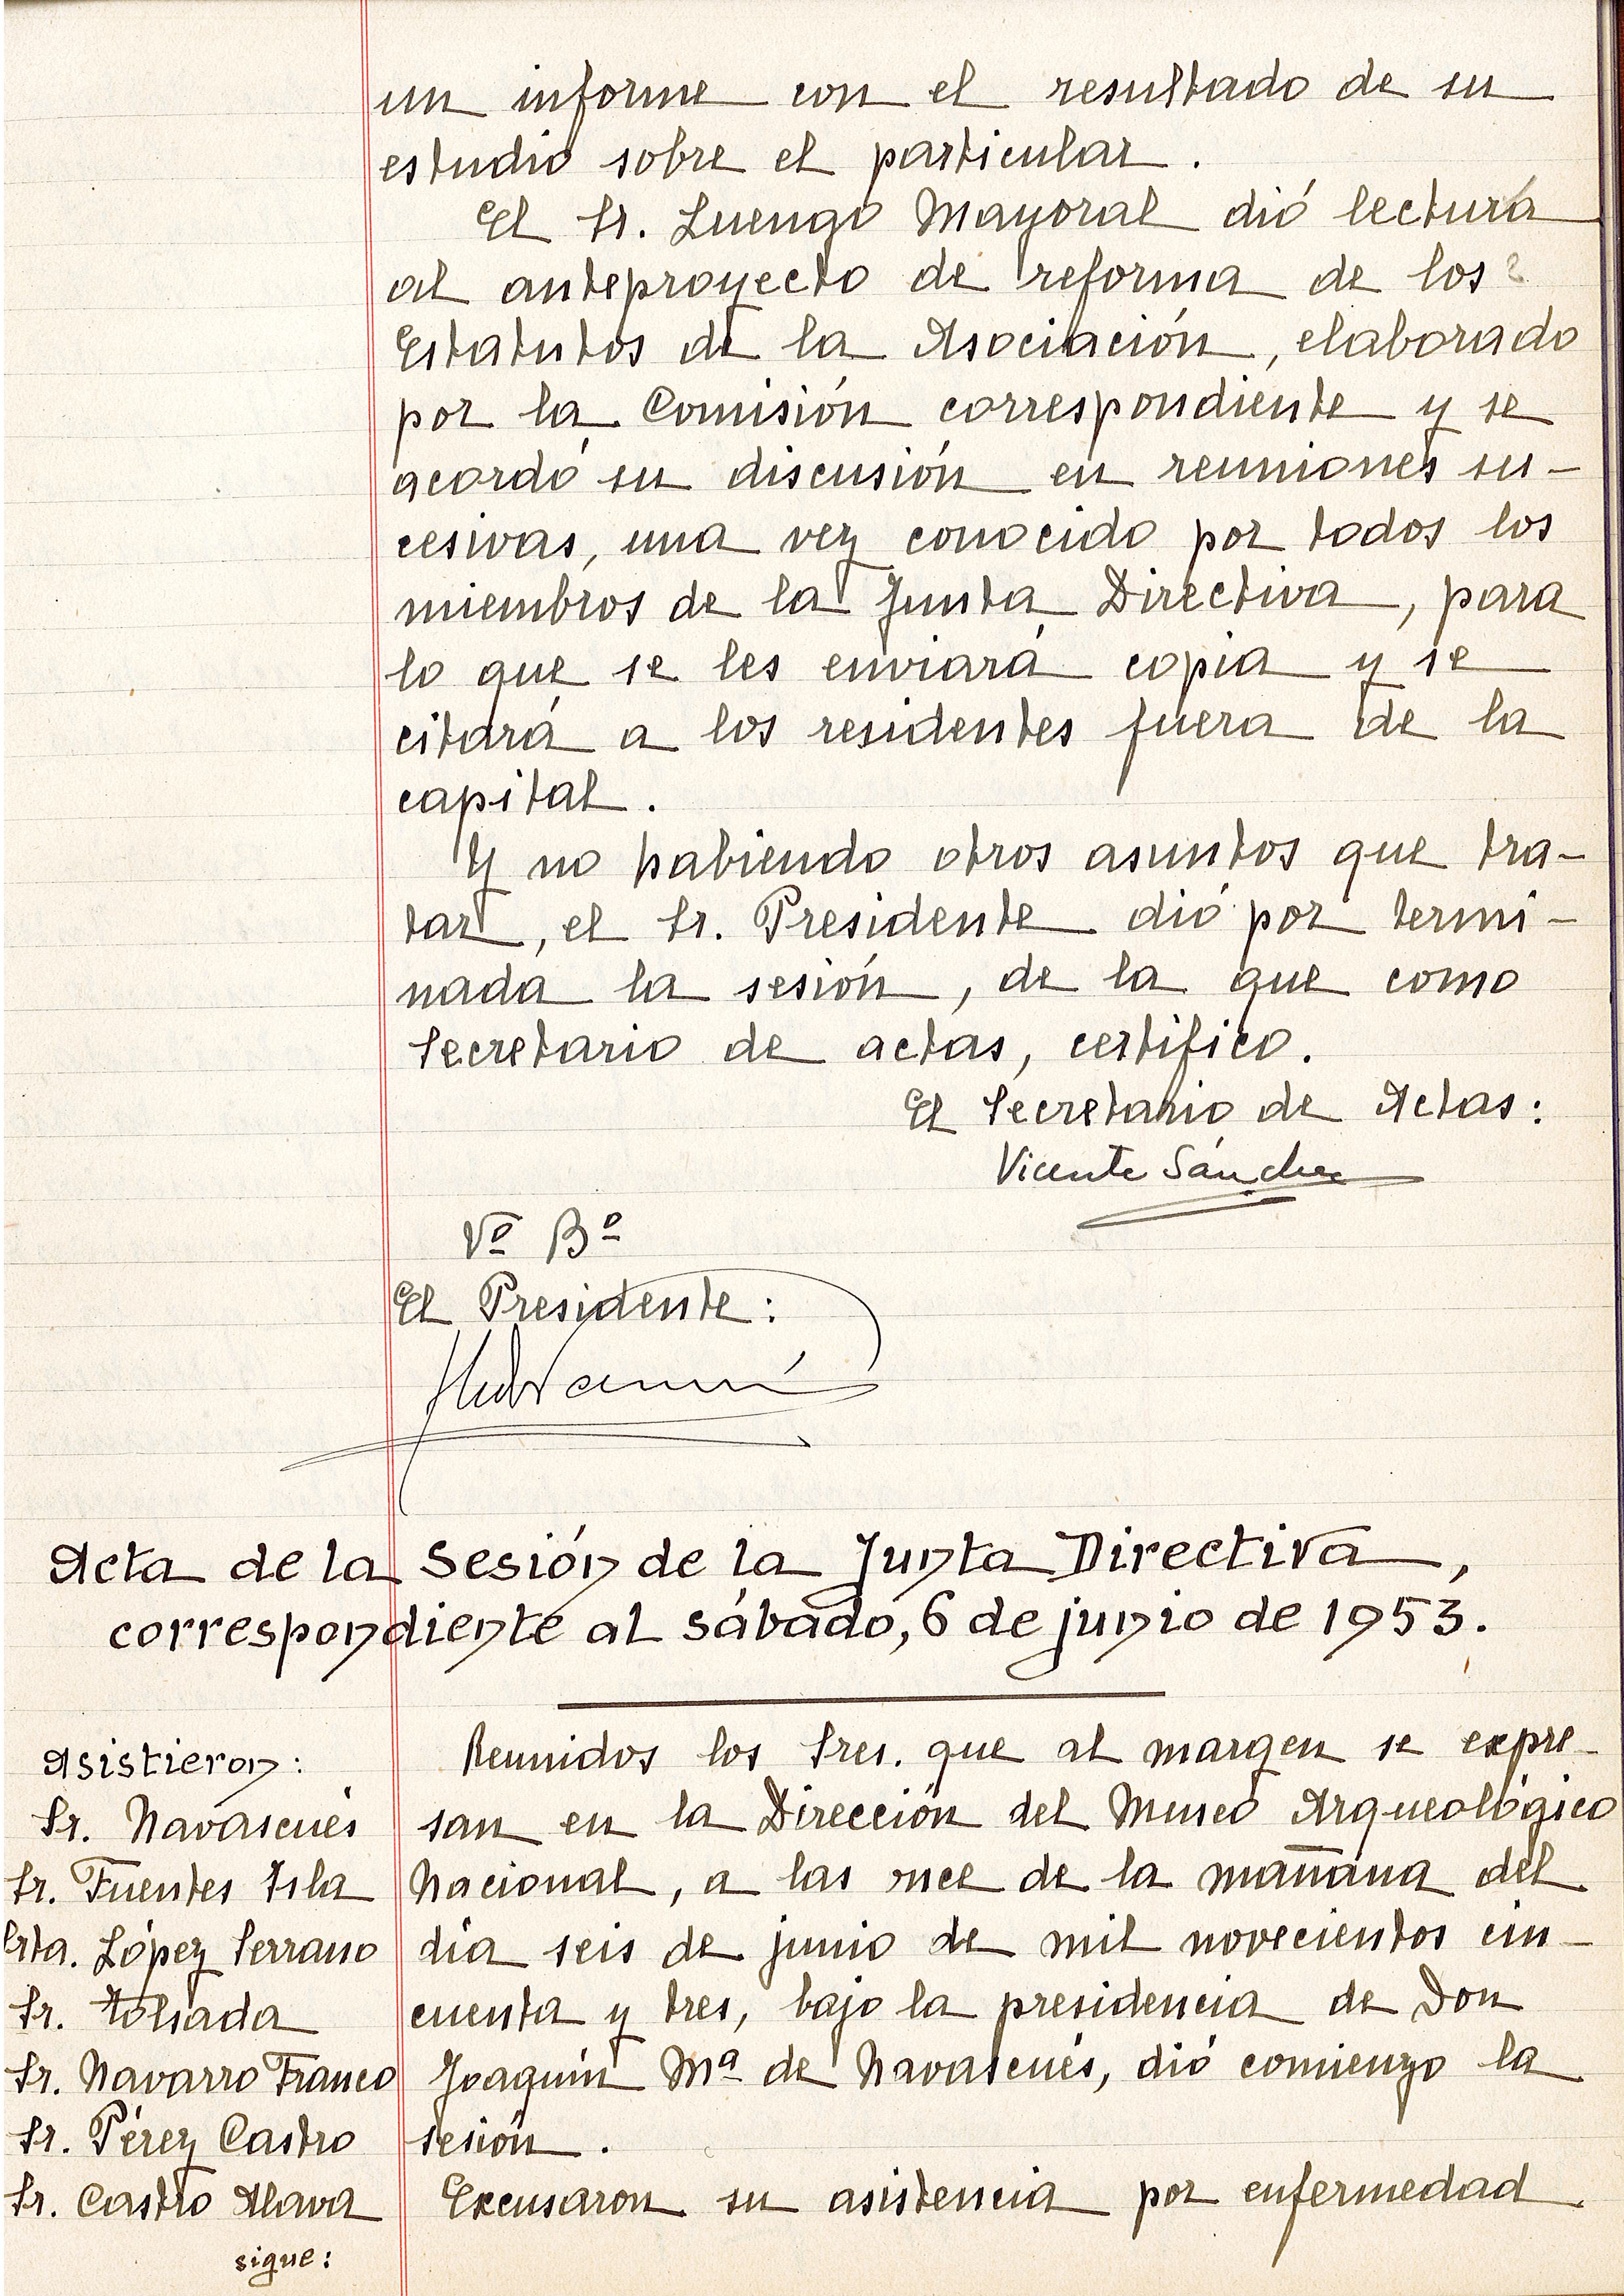 un informe con el resultado de su
estudio sobre el particular.
El Sr. Luengo Mayoral dió lectura
al anteproyecto de reforma de los
Estatutos de la Asociación, elaborado
por la Comisión correspondiente y se
acordó su discusión en reuniones su-
cesivas, una vez conocido por todos los
miembros de la Junta Directiva, para
lo que se les enviará copia y se
citará a los residentes fuera de la
capital.
Y no habiendo otros asuntos que tra-
tar, el Sr. Presidente dió por termi-
nada la sesión, de la que como
Secretario de actas, certifico.
El Secretario de Actas:
Vicente Sánchez
Vº Bº
El Presidente:
Acta de la Sesión de la Junta Directiva,
correspondiente al sábado, 6 de junio de 1953.
Asistieron:
Sr. Navascués
Sr. Fuentes Isla
Srta. López Serrano
Sr. Tolsada
Sr. Navarro Franco
Sr. Pérez Castro
Sr. Castro Alava
sigue:
Reunidos los Sres. que al margen se expre-
san en la Dirección del Museo Arqueológico
Nacional, a las once de la mañana del
día seis de junio de mil novecientos cin-
cuenta y tres, bajo la presidencia de Don
Joaquín Mª de Navascués, dió comienzo la
sesión.
Excusaron su asistencia por enfermedad